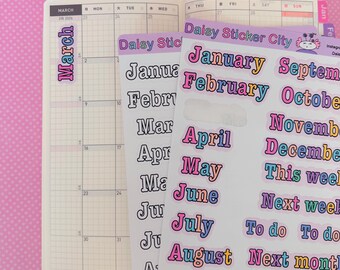 MARCH
March
Daisy Sticker City
January
February
March
April
May
June
July
August
Daisy Sticker City
January
February
April
May
June
July
August
Septem
October
Novembe
Decembe
This week
Next week
To do To do
Next month